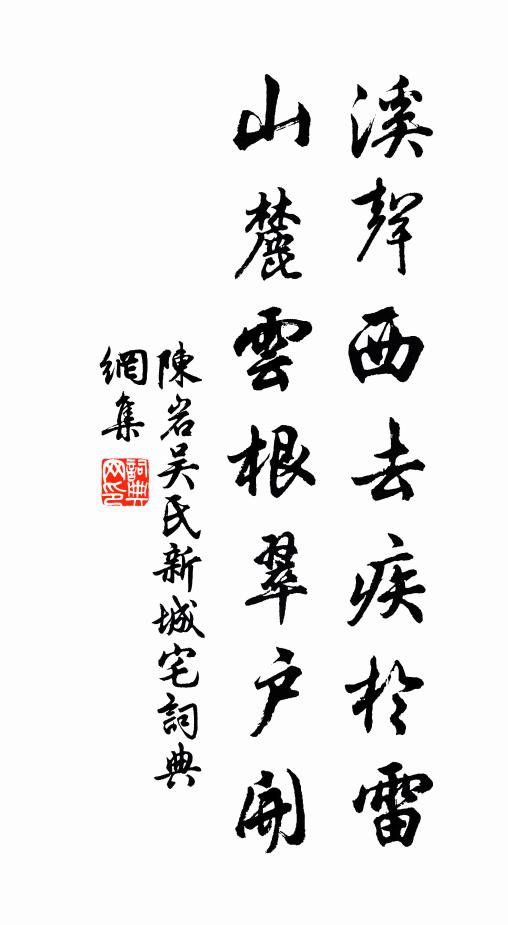 溪聲西去疾於雷
山麓雲根翠户開
陳岩吴民新城宅詞典
網集
詞典網印